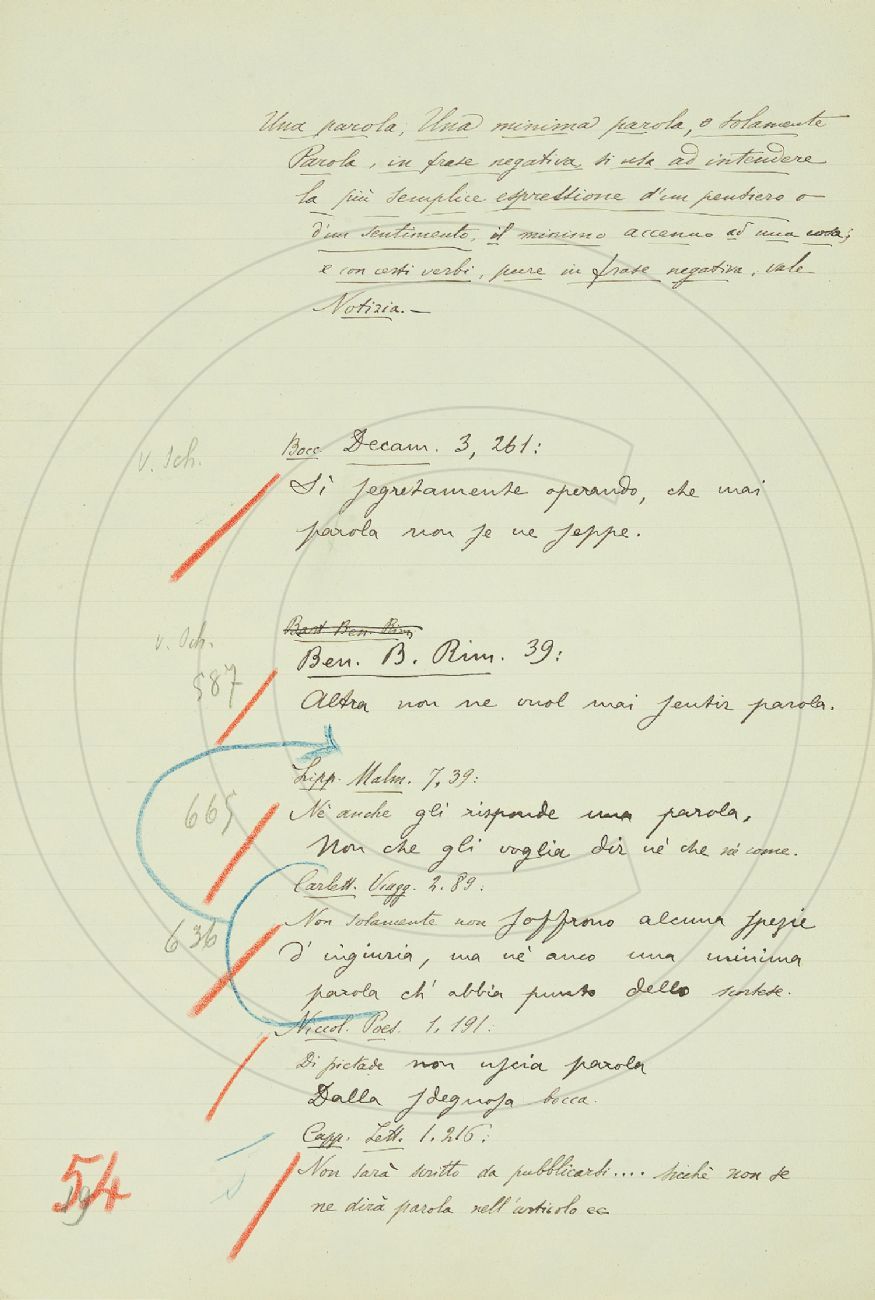 Una parola, Una minima parola, o solamente
Parola, in frase negativa, si usa ad intendere
la più semplice espressione d'un pensiero o
d'un sentimento, il minimo accenno ad una cosa;
e con certi verbi, pure in frase negativa, vale
Notizia. —
v. Sch.
Bocc Decam. 3, 261:
Sì segretamente operando, che mai
parola non se ne seppe.
v. Sch.
Ben. B. Rim. 39:
587
Altra non ne vuol mai sentir parola.
Lipp. Malm. 7, 39:
665
Nè anche gli risponde una parola,
Non che gli voglia dir nè che nè come.
Carlett. Viagg. 2. 89:
636
Non solamente non soffrono alcuna spezie
d'ingiuria, ma nè anco una minima
parola ch'abbia punto dello scortese.
Niccol. Poes. 1. 191:
Di pietade non uscia parola
Dalla sdegnosa bocca.
Capp. Lett. 1. 216:
Non sarà scritto da pubblicarsi.... sicchè non se
ne dirà parola nell'articolo ec
54
19